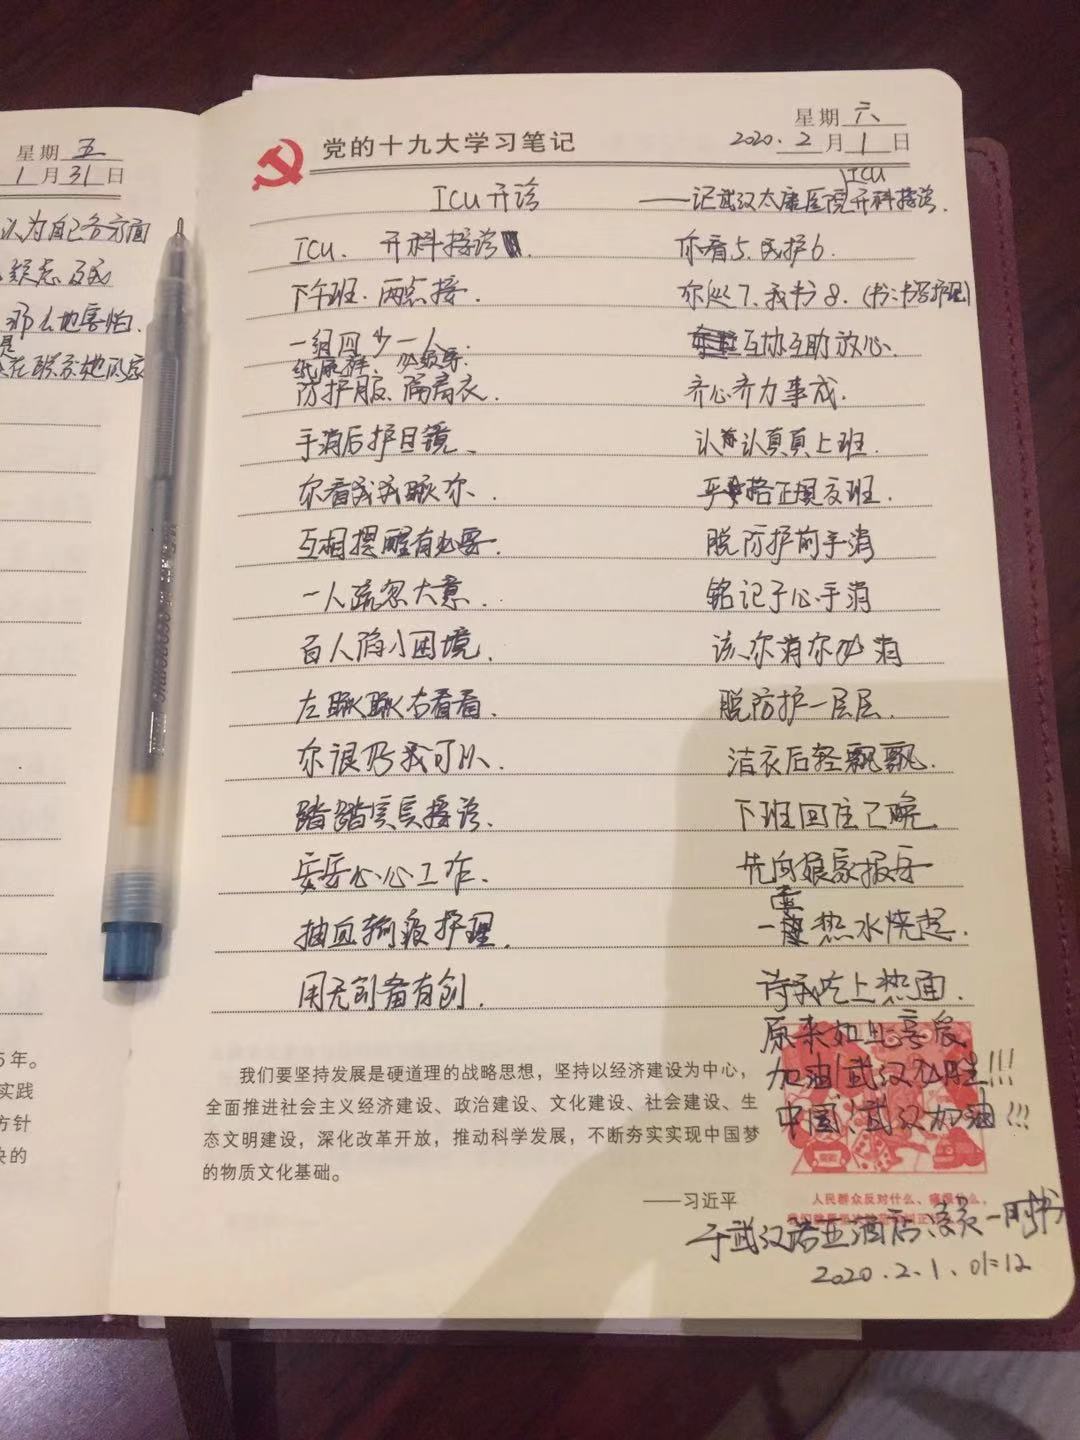 星期 五
1月31日
认为自己各方面
那么地害怕.
是
在联系她的家
5年。
实践
方针
央的
星期 六
党的十九大学习笔记
2020.2月1日
ICU
ICU开诊 ——记武汉太康医院开科接诊.
ICU. 开科接诊
下午班.两点接.
一组四少一人.
纸尿裤.必须穿.
防护服、隔离衣.
手消后护目镜、
你看我我瞅你.
互相提醒有必要.
一人疏忽大意.
百人陷入困境.
左瞅瞅右看看.
你很好我可以.
踏踏实实接诊.
安安心心工作.
抽血输液护理.
用无创备有创.
你看5.我护6.
你处7.我书8.(书:书写护理)
互协互助放心.
齐心齐力事成.
认认真真上班.
严格正规交班.
脱防护前手消
铭记于心手消
该你消你必消
脱防护一层层.
洁衣后轻飘飘.
下班回住已晚.
先向娘家报平
壶
一热水烧起.
待我吃上热面.
原来如此享受
加油!武汉必胜!!!
中国、武汉加油!!!
我们要坚持发展是硬道理的战略思想，坚持以经济建设为中心，
全面推进社会主义经济建设、政治建设、文化建设、社会建设、生
态文明建设，深化改革开放，推动科学发展，不断夯实实现中国梦
的物质文化基础。
——习近平
人民群众反对什么、痛恨什么，
于武汉诺亚酒店凌晨一时书
2020.2.1、01:12